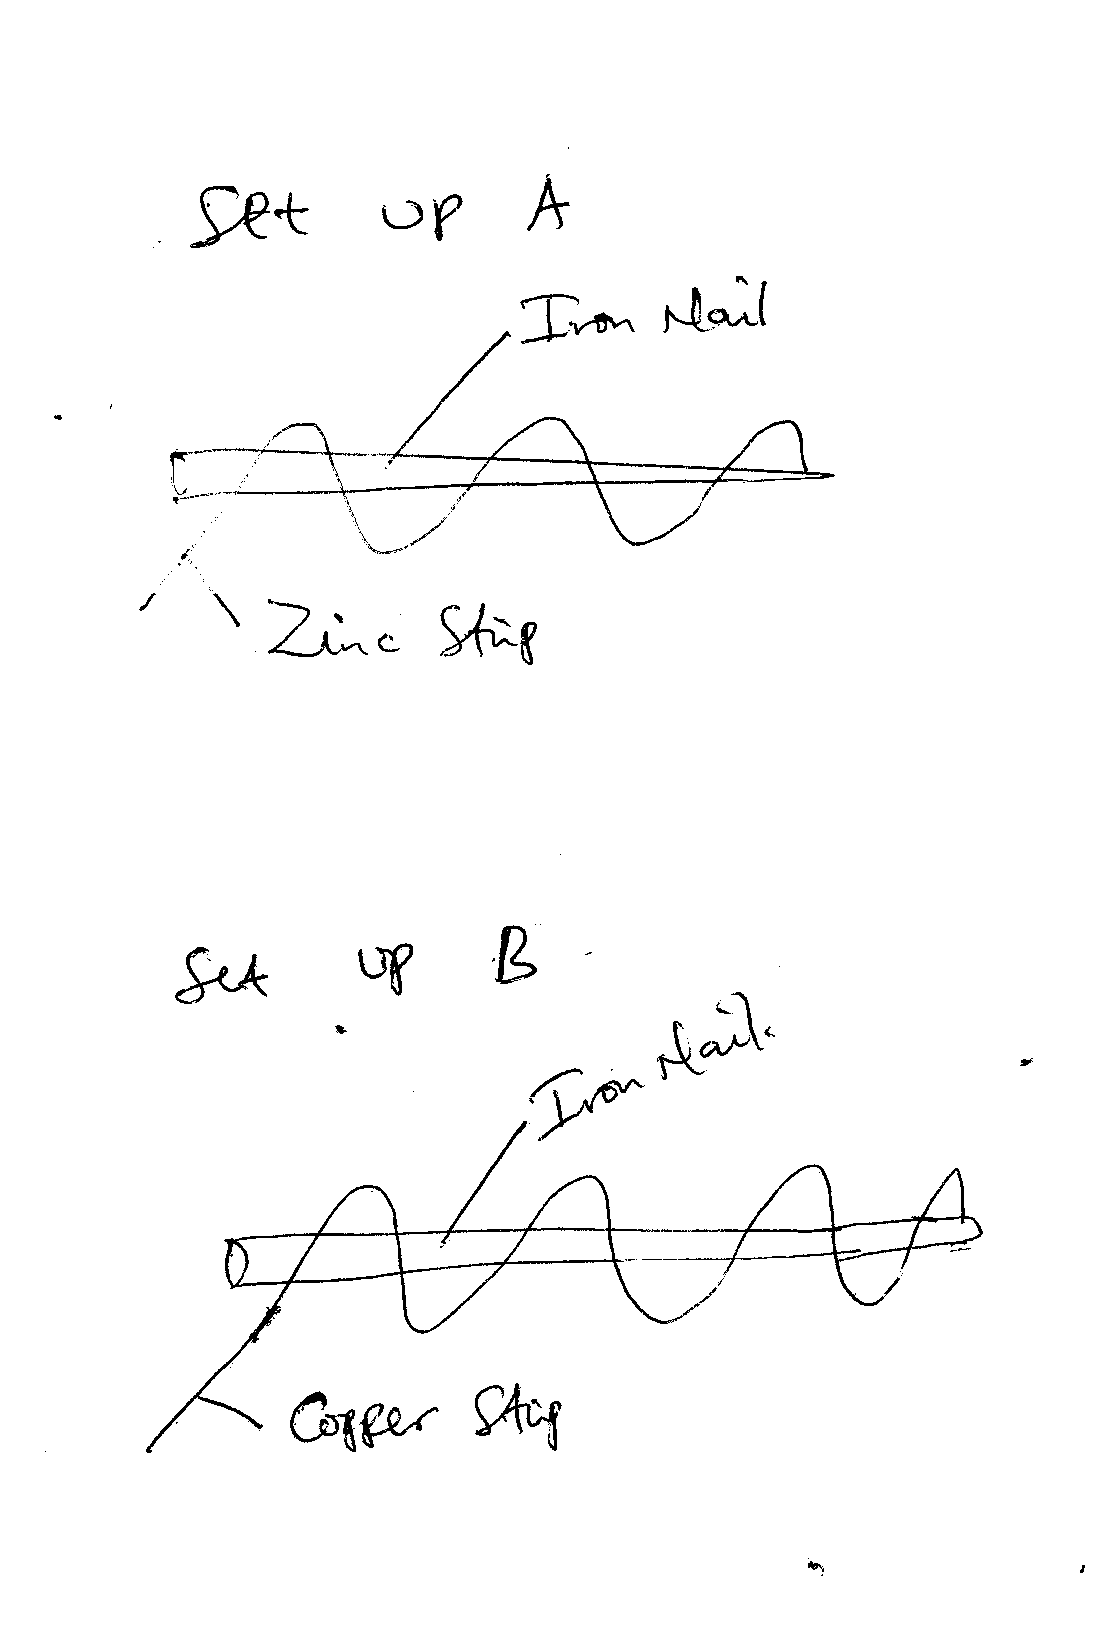 Set up A
Iron Nail
Zinc Strip
Set up B
Iron Nail.
Copper Strip